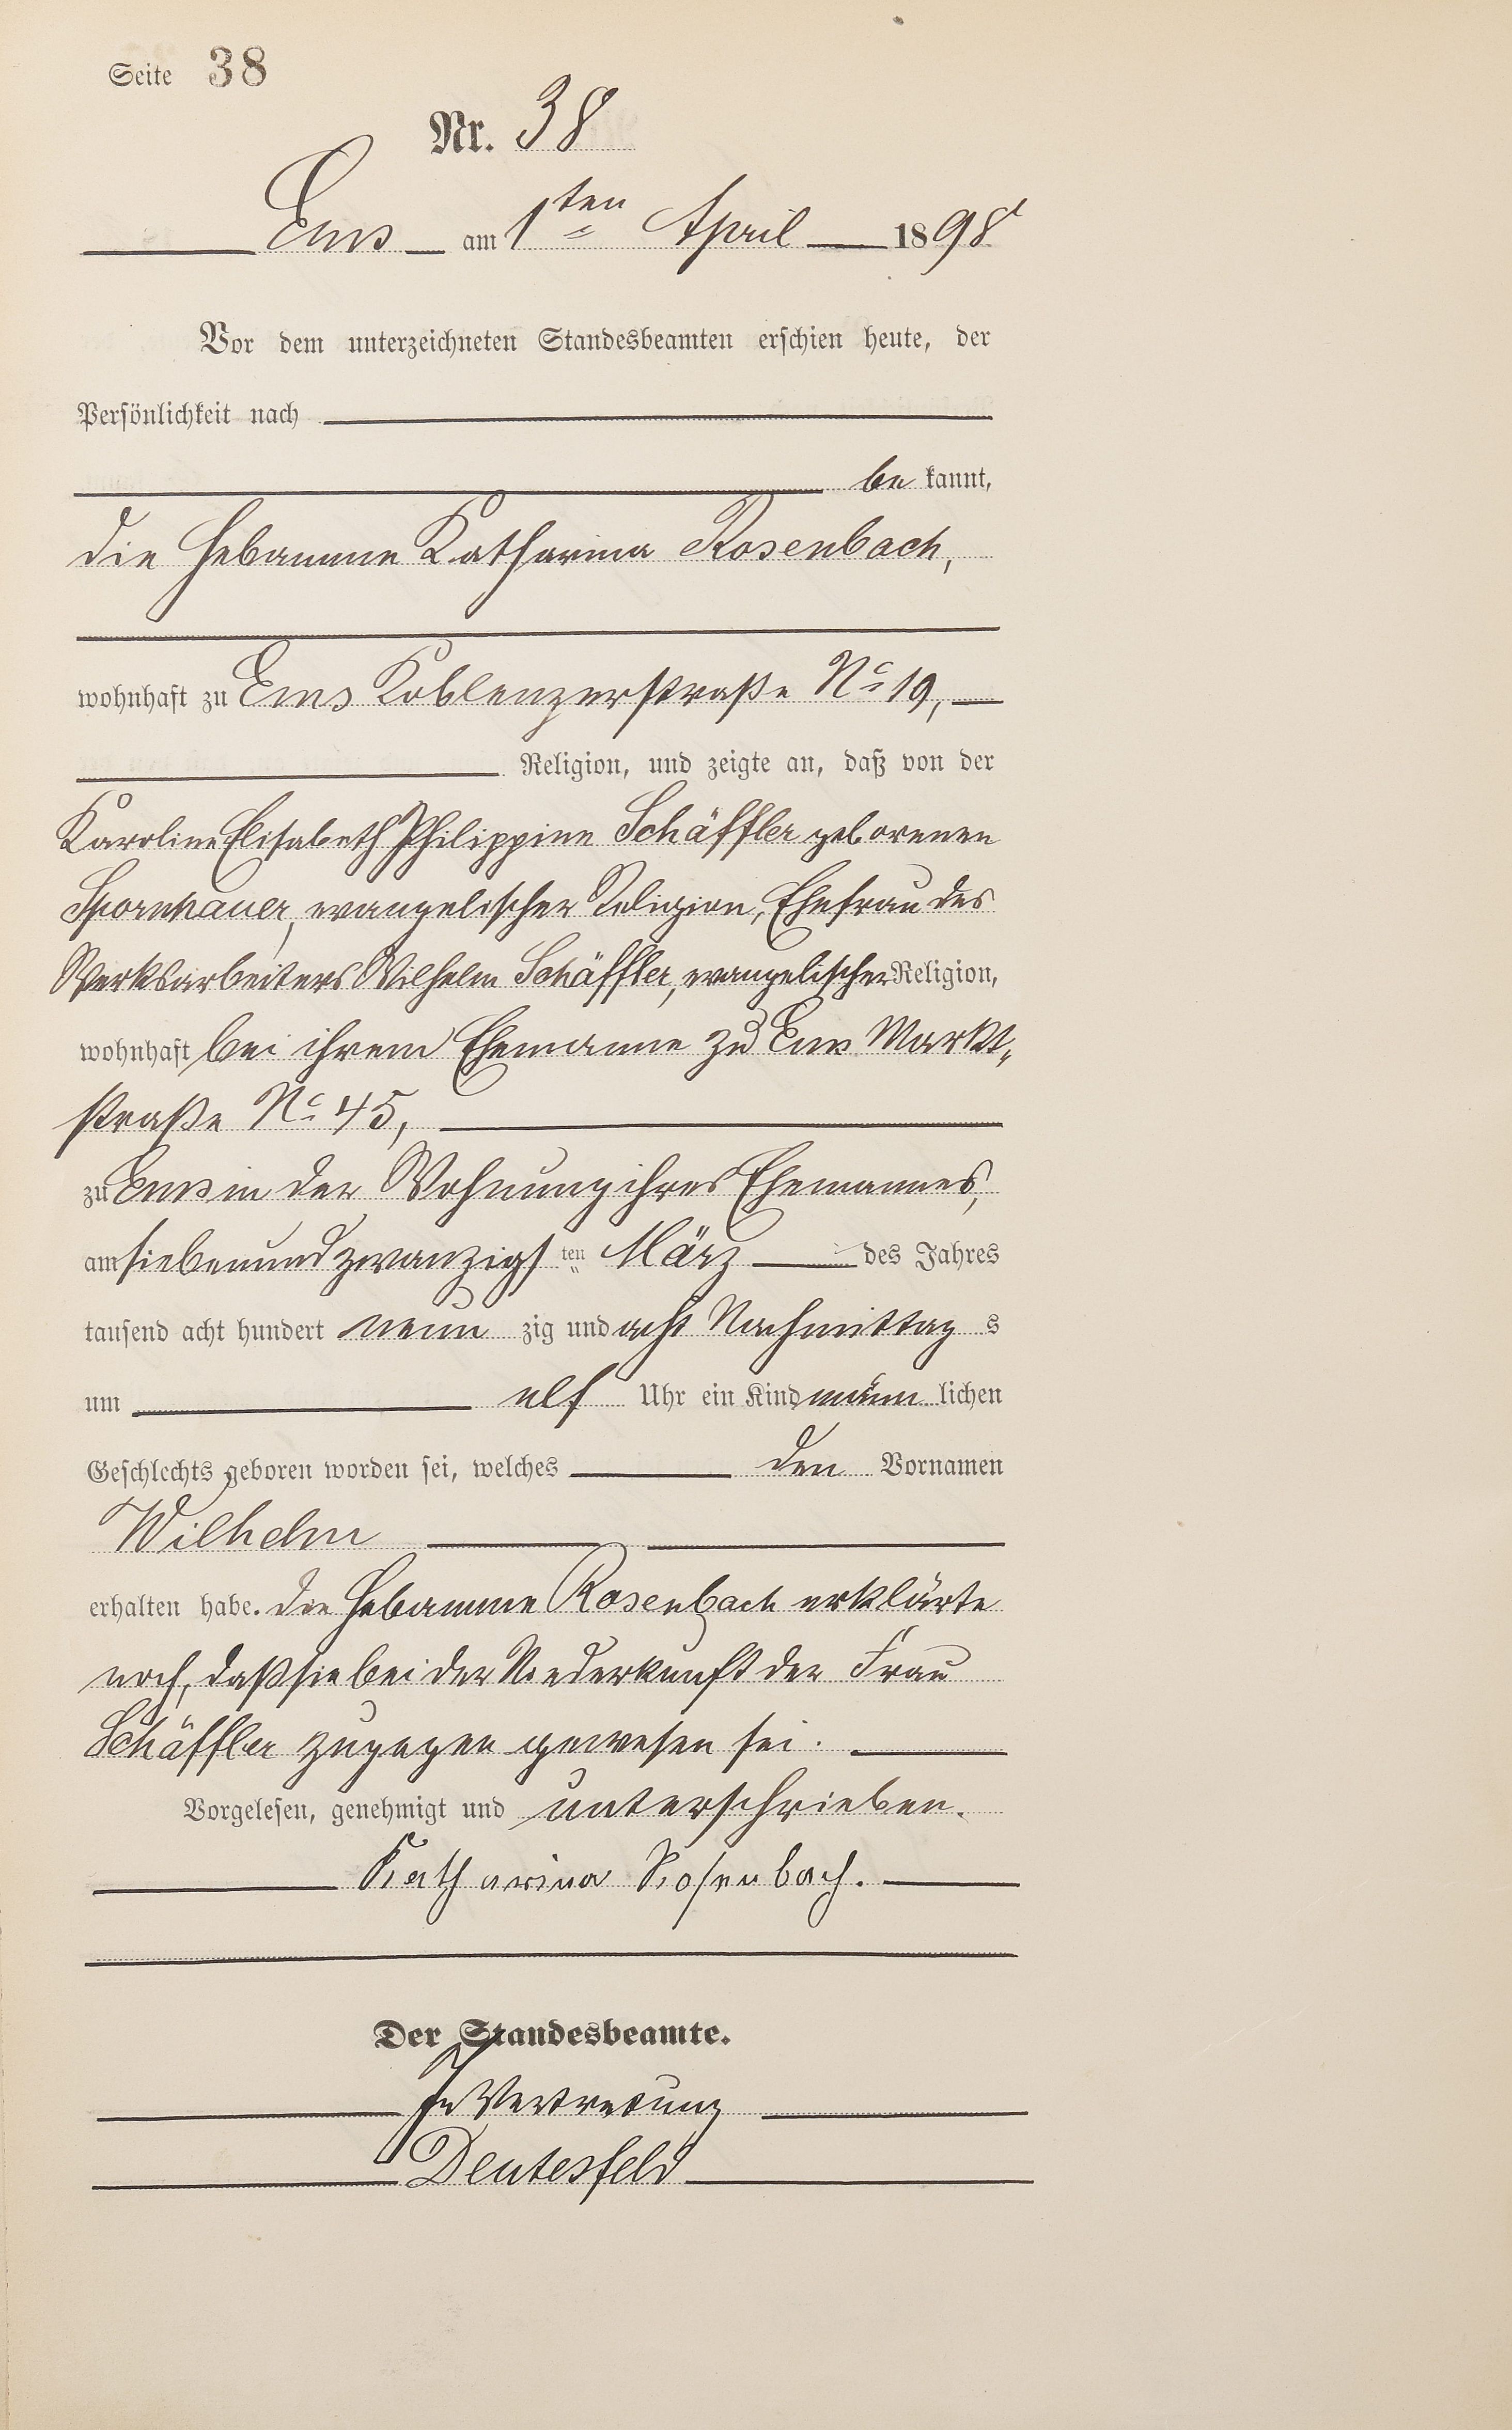 Seite 38
Nr. 38
Ems am 1ten April 1898
Vor dem unterzeichneten Standesbeamten erschien heute, der
Persönlichkeit nach
be kannt,
die Hebamme Katharina Rosenbach,
wohnhaft zu Ems Koblenzerstraße No 19,
Religion, und zeigte an, daß von der
Karoline Elisabeth Philippine Schäffler geborenen
Spornhauer, evangelischer Religion, Ehefrau des
Werksarbeiters Wilhelm Schäffler, evangelischer Religion,
wohnhaft bei ihrem Ehemanne zu Ems Markt-
straße No 45,
zu Ems in der Wohnung ihres Ehemannes,
am siebenundzwanzigsten März des Jahres
tausend acht hundert neunzig und acht Nachmittags
um elf Uhr ein Kind männlichen
Geschlechts geboren worden sei, welches den Vornamen
Wilhelm
erhalten habe. Die Hebamme Rosenbach erklärte
noch, daß sie bei der Niederkunft der Frau
Schäffler zugegen gewesen sei.
Vorgelesen, genehmigt und unterschrieben.
Katharina Rosenbach.
Der Standesbeamte.
In Vertretung
Deutesfeld